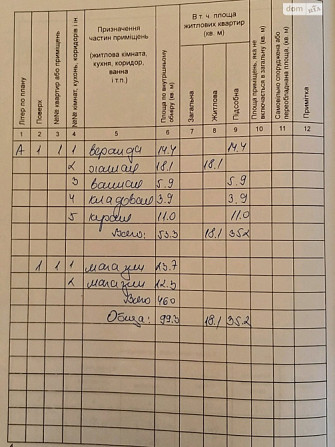 dom.ria
Літер по плану
Поверх
№№ квартир або приміщень
№№ кімнат, кухонь, коридорів і н
Призначення частин приміщень (житлова кімната, кухня, коридор, ванна і т.п.)
Площа по внутрішньому обміру (кв. м)
В т. ч. площа житлових квартир (кв. м)
Загальна
Житлова
Підсобна
Площа приміщень, яка не включається в загальну (кв. м)
Самовільно споруджена або переобладнана площа, (кв. м)
Примітка
1 2 3 4 5 6 7 8 9 10 11 12
А 1 1 1 веранда 14.4 14.4
2 18.1 18.1
3 ванная 5.9 5.9
4 кладовая 3.9 3.9
5 кухня 11.0 11.0
Всего: 53.3 18.1 35.2
1 1 1 магазин
2 магазин
Всего 46.0
Общая: 99.3 18.1 35.2